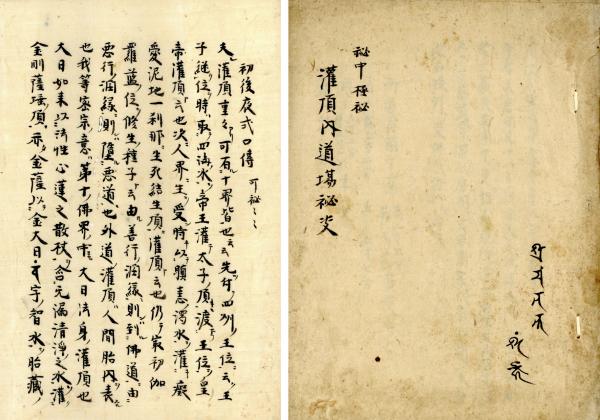 秘中極秘
灌頂内道場秘决
初後夜式口傳 可秘々々
夫灌頂重々可有十界皆也云云先付四州王位云王
子継位時取四海水帝王灌太子頂渡王位皇
帝灌頂云也次人界生受時以順恚濁水灌癡
愛泥地一刹那生死結生頂灌頂云也仍最初伽
羅藍位修生種子云由善行潤縁則到佛道由
悪行潤縁則堕悪道也外道灌頂人間胎内表
也我等密宗意第十佛界中大日法身灌頂也
大日如来以法性心蓮之散杖含无漏清淨之水灌
金剛薩埵頂示金薩以金大日字智水胎藏